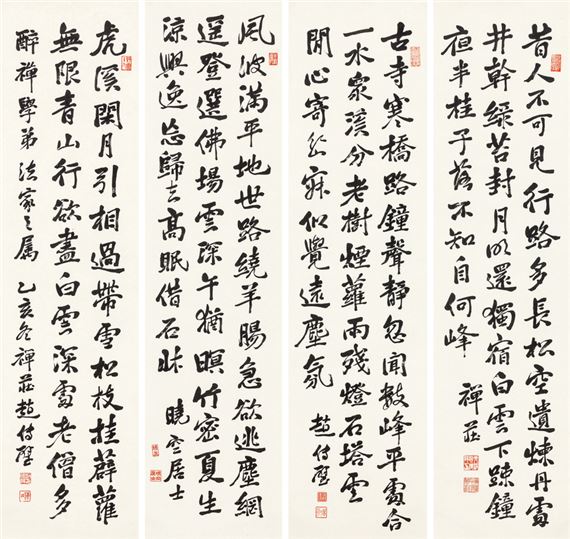 昔人不可見行路多長松空遺煉丹處
井幹綠苔封月明還獨宿白雲下疎鐘
夜半桂子落不知自何峰
禪莊
古寺寒橋路鐘聲靜忽聞數峰平處合
一水衆溪分老樹煙蘿雨殘燈石塔雲
閒心寄 似覺遠塵氛
趙
風波滿平地世路繞羊腸急欲逃塵網
逕登選佛場雲深午猶暝竹密夏生
涼興逸忘歸去高眠借石牀
曉雲居士
虎溪閑月引相過帶雪松枝挂薜蘿
無限青山行欲盡白雲深處老僧多
醉禪學弟法家之屬 乙亥冬禪莊趙